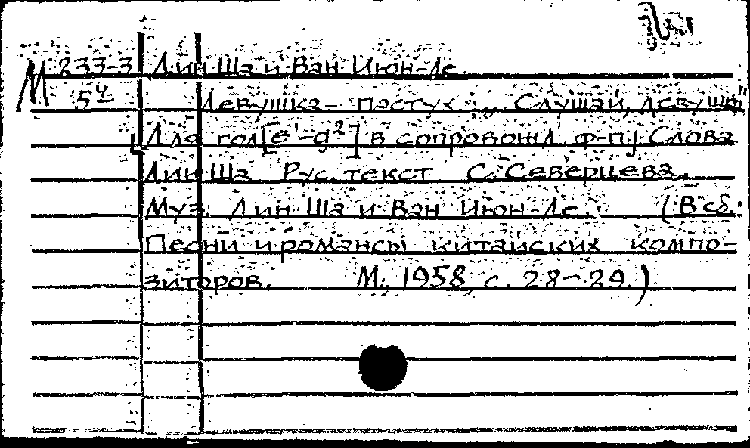 М 833-3 Лин Ша и Ван Июн-Ле.
54 Девушка-пастух. „Слушай, девушка"
[Для гол[е¹-g²] в сопровожд. ф-п.] Слова
Лин Ша Рус. текст С. Северцева.
Муз. Лин Ша и Ван Июн-Ле. (В сб.:
Песни и романсы китайских компо-
зиторов. М., 1958 с. 28-29.)